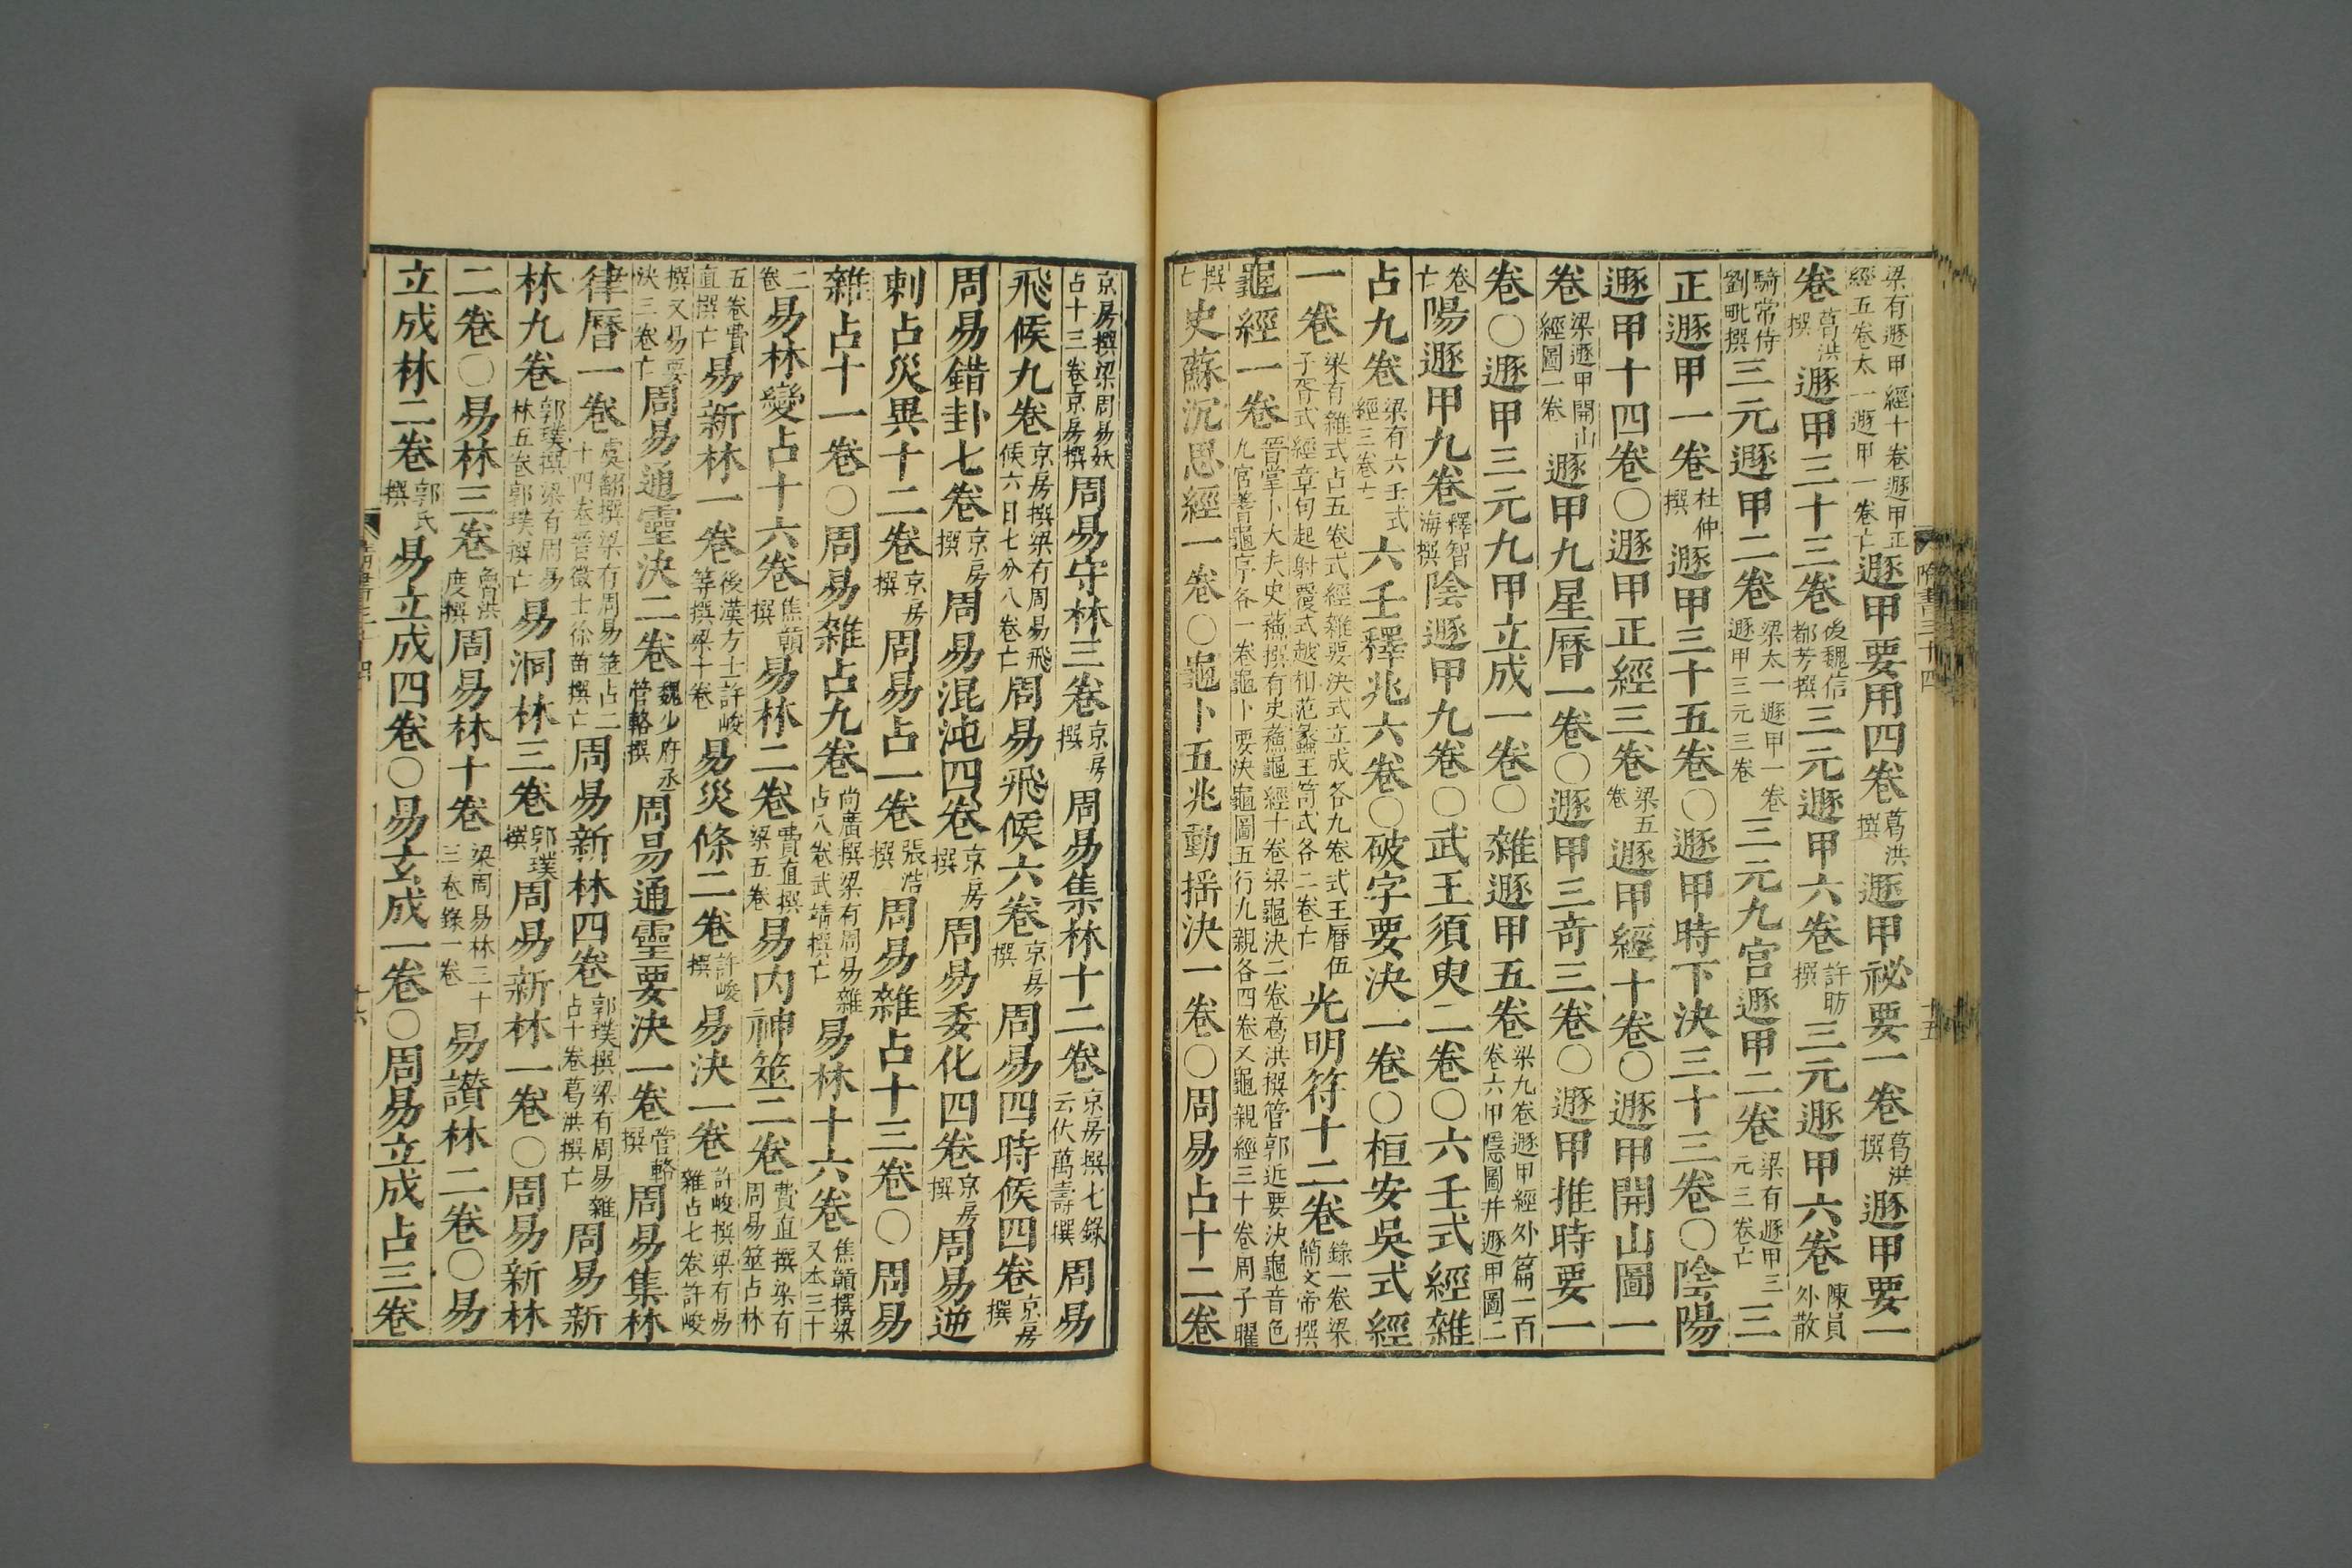 梁有遯甲經十卷遯甲正經五卷太一遯甲一卷亡遯甲要用四卷葛洪撰遯甲祕要一卷葛洪撰遯甲要一
卷葛洪撰遯甲三十三卷後魏信都芳撰三元遯甲六卷許昉撰三元遯甲六卷陳員外散
騎常侍劉毗撰三元遯甲二卷梁太一遯甲一卷遯甲三元三卷三元九宮遯甲二卷梁有遯甲三元三卷亡三
正遯甲一卷杜仲撰遯甲三十五卷〇遯甲時下決三十三卷〇陰陽
遯甲十四卷〇遯甲正經三卷梁五卷遯甲經十卷〇遯甲開山圖一
卷梁遯甲開山經圖一卷遯甲九星曆一卷〇遯甲三奇三卷〇遯甲推時要一
卷〇遯甲三元九甲立成一卷〇雜遯甲五卷梁九卷遯甲經外篇一百卷六甲隱圖并遯甲圖二
卷亡陽遯甲九卷釋智海撰陰遯甲九卷〇武王須臾二卷〇六壬式經雜
占九卷梁有六壬式經三卷亡六壬釋兆六卷〇破字要決一卷〇桓安吳式經
一卷梁有雜式占五卷式經雜要決式立成各九卷式王曆伍子胥式經章句起射覆式越相范蠡玉笥式各二卷亡光明符十二卷錄一卷梁簡文帝撰
龜經一卷晉掌卜大夫史蘇撰有史蘇龜經十卷梁龜決二卷葛洪撰管郭近要決龜音色九宮蓍龜序各一卷龜卜要決龜圖五行九親各四卷又龜親經三十卷周子曜
撰亡史蘇沉思經一卷〇龜卜五兆動揺決一卷〇周易占十二卷
隋書三十四
十五
京房撰梁周易妖占十三卷京房撰周易守林三卷京房撰周易集林十二卷京房撰七錄云伏萬壽撰周易
飛候九卷京房撰梁有周易飛候六日七分八卷亡周易飛候六卷京房撰周易四時候四卷京房撰
周易錯卦七卷京房撰周易混沌四卷京房撰周易委化四卷京房撰周易逆
刺占災異十二卷京房撰周易占一卷張浩撰周易雜占十三卷〇周易
雜占十一卷〇周易雜占九卷尚廣撰梁有周易雜占八卷武靖撰亡易林十六卷焦贛撰梁又本三十
二卷易林變占十六卷焦贛撰易林二卷費直撰梁五卷易內神筮二卷費直撰梁有周易筮占林
五卷費直撰亡易新林一卷後漢方士許峻等撰梁十卷易災條二卷許峻撰易決一卷許峻撰梁有易雜占七卷許峻
撰又易要決三卷亡周易通靈決二卷魏少府丞管輅撰周易通靈要決一卷管輅撰周易集林
律曆一卷虞翻撰梁有周易筮占二十四卷晉徵士徐苗撰亡周易新林四卷郭璞撰梁有周易雜占十卷葛洪撰亡周易新
林九卷郭璞撰梁有周易林五卷郭璞撰亡易洞林三卷郭璞撰周易新林一卷〇周易新林
二卷〇易林三卷魯洪度撰周易林十卷梁周易林三十三卷錄一卷易讚林二卷〇易
立成林二卷郭氏撰易立成四卷〇易玄成一卷〇周易立成占三卷
十六